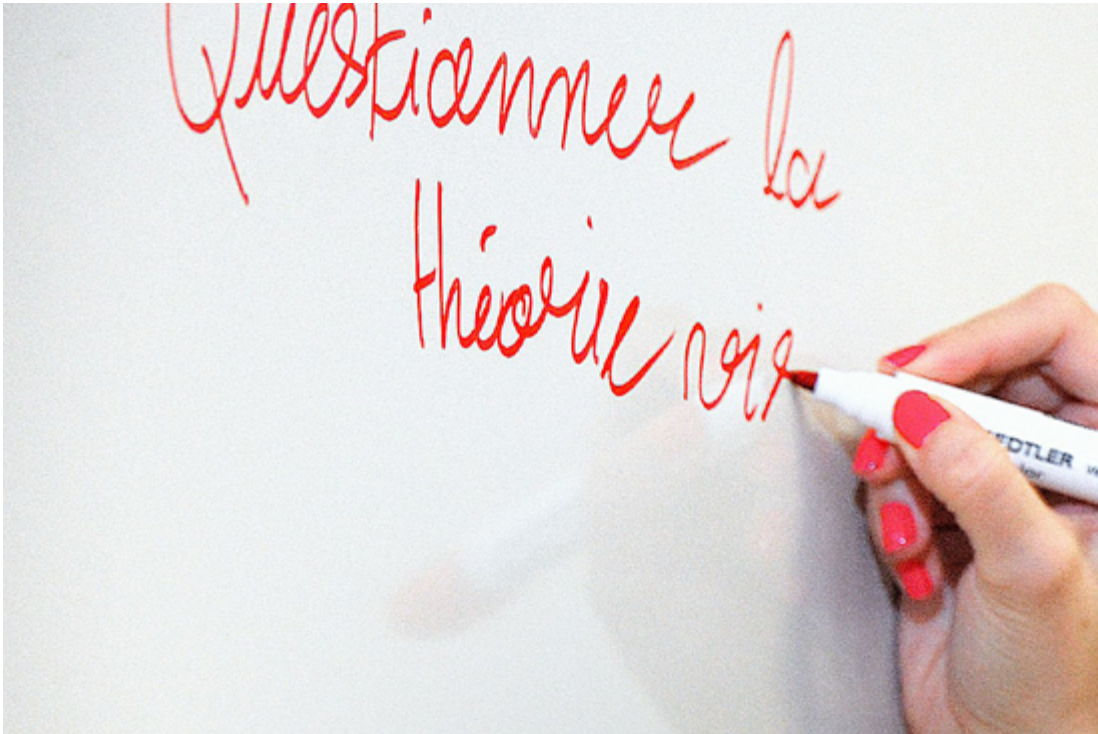 Questionner la
théorie
EDTLER